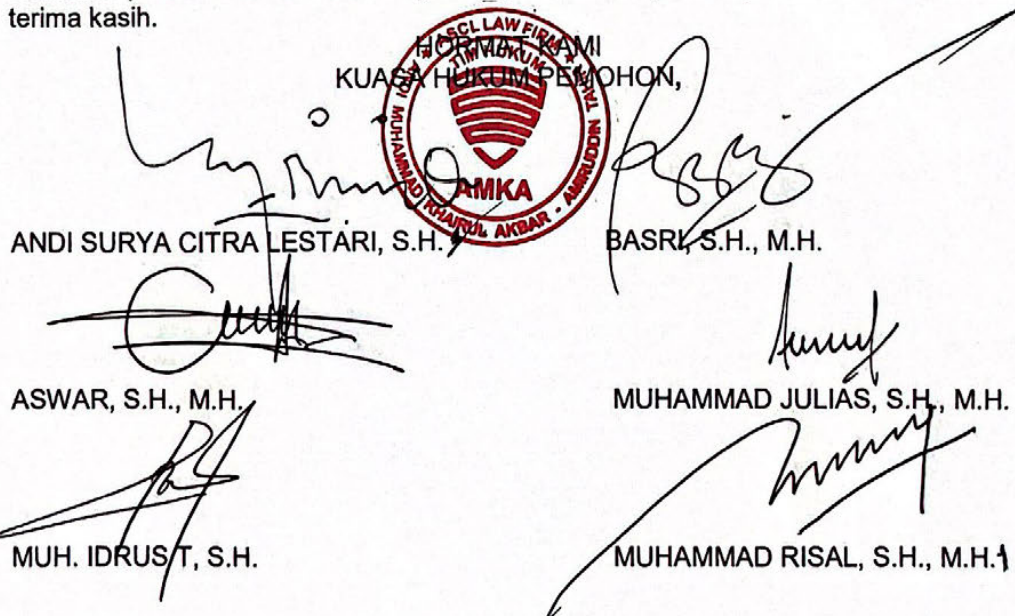 terima kasih.
HORMAT KAMI
KUASA HUKUM PEMOHON,
ASCL LAW FIRM
TIM HUKUM
ANDI MUHAMMAD KHAIRUL AKBAR - AMIRUDDIN
AMKA
ANDI SURYA CITRA LESTARI, S.H.
BASRI, S.H., M.H.
ASWAR, S.H., M.H.
MUHAMMAD JULIAS, S.H., M.H.
MUH. IDRUS T, S.H.
MUHAMMAD RISAL, S.H., M.H.